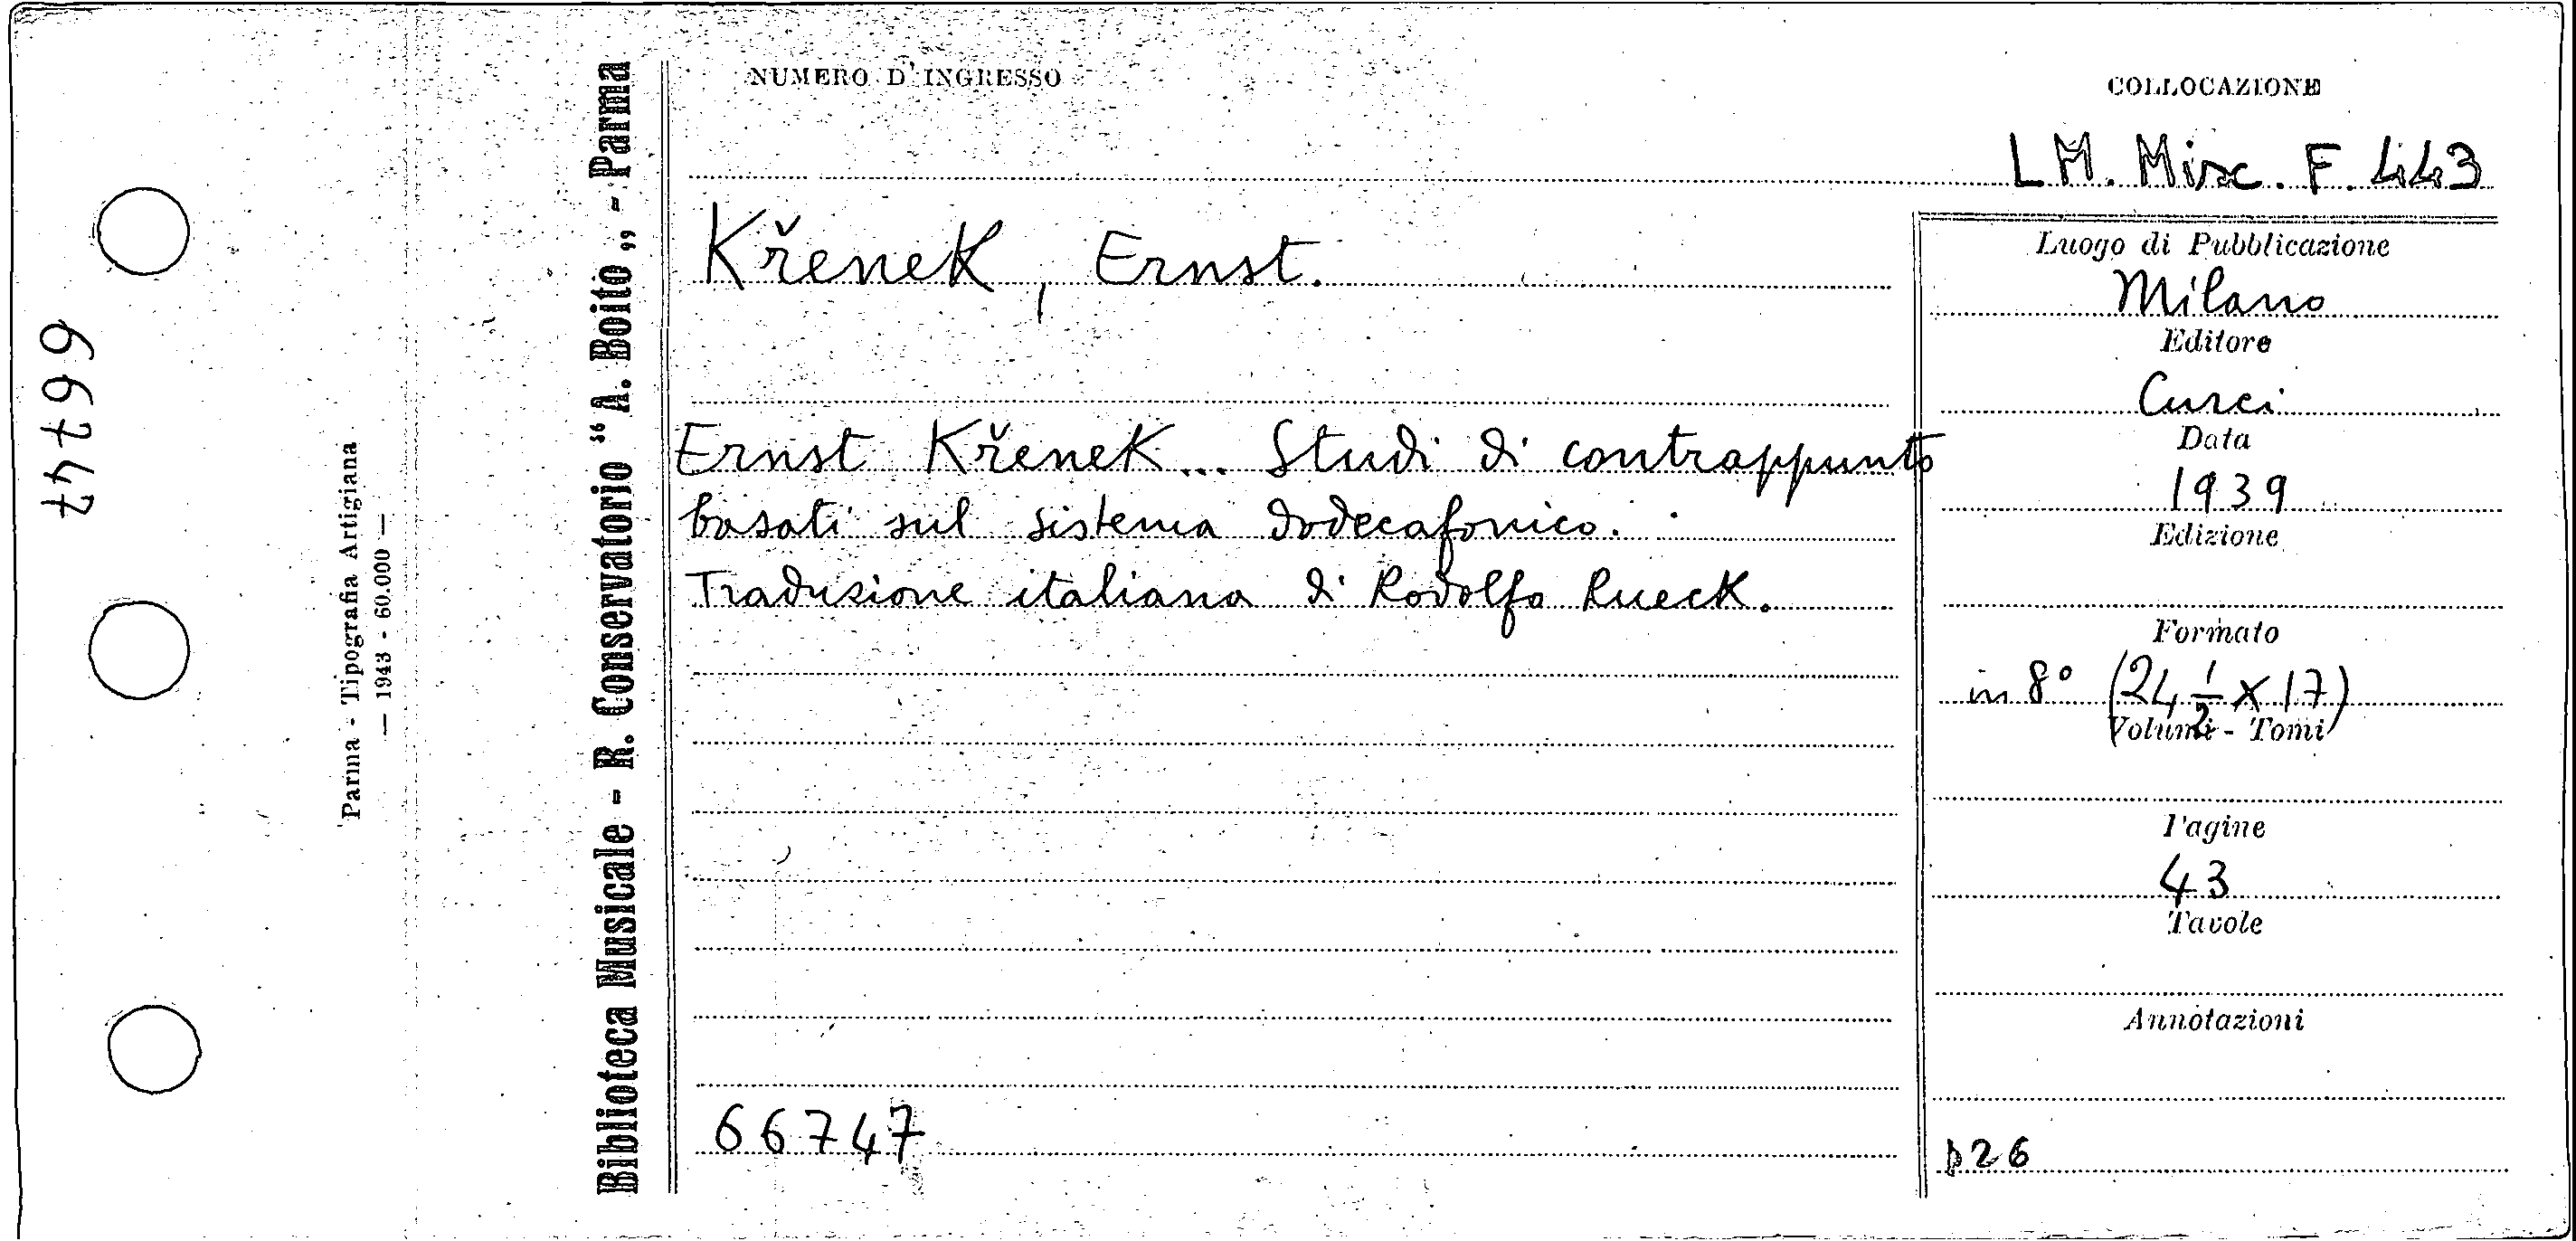 66747
Parma - Tipografia Artigiana
— 1943 - 60.000 —
Biblioteca Musicale - R. Conservatorio “A. Boito„ - Parma
NUMERO D'INGRESSO
COLLOCAZIONE
LM. Misc. F. 443
Křenek, Ernst.
Ernst Křenek... Studi di contrappunto
basati sul sistema dodecafonico.
Traduzione italiana di Rodolfo Rueck.
66747
Luogo di Pubblicazione
Milano
Editore
Curci
Data
1939
Edizione
Formato
in 8° (24 1/2 x 17)
Volumi - Tomi
Pagine
43
Tavole
Annotazioni
p26